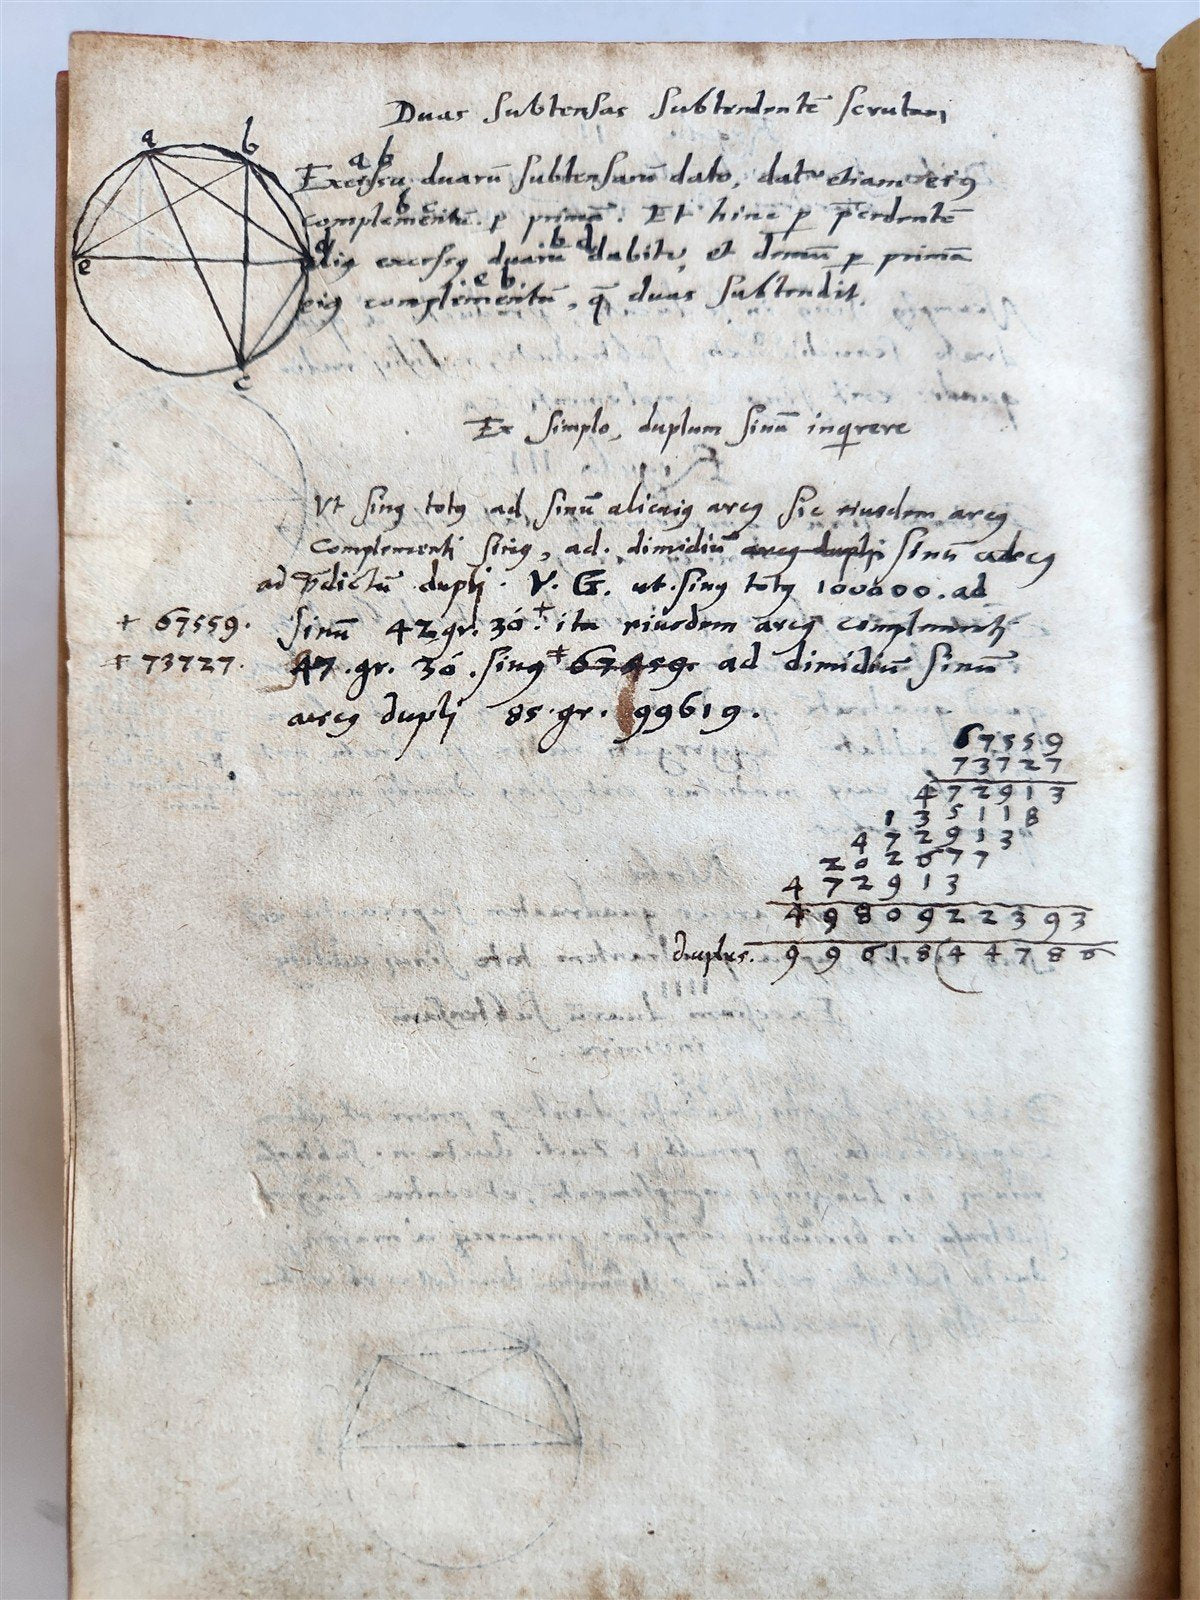 Duas subtensas subtendentē scrutari
a b
a b
Excessu duarū subtensarū dato, datr etiam eius
b c
complementū p primā. Et hinc p p̄cedentē
d
b d
e
alius excessus duarū dabitr, et demū p primā
e b
eius complimentū, q̄ duas subtendit.
c
Ex simplo, duplum sinū inqrere
Vt sinus totus ad sinū alicuius arcus sic eiusdem arcus
complementi sinus, ad dimidiū arcus dupli sinū
ad p̄dictū dupli. V. G. ut sinus totus 100000. ad
+ 67559. sinū 42 gr. 30. + ita eiusdem arcus complementi
‡ 73727. 47. gr. 30. sinus ‡ 67559. ad dimidiū sinū
arcus dupli 85. gr. 99619.
67559
73727
472913
135118
472913
202677
472913
4980922393
duplus. 99618(44786